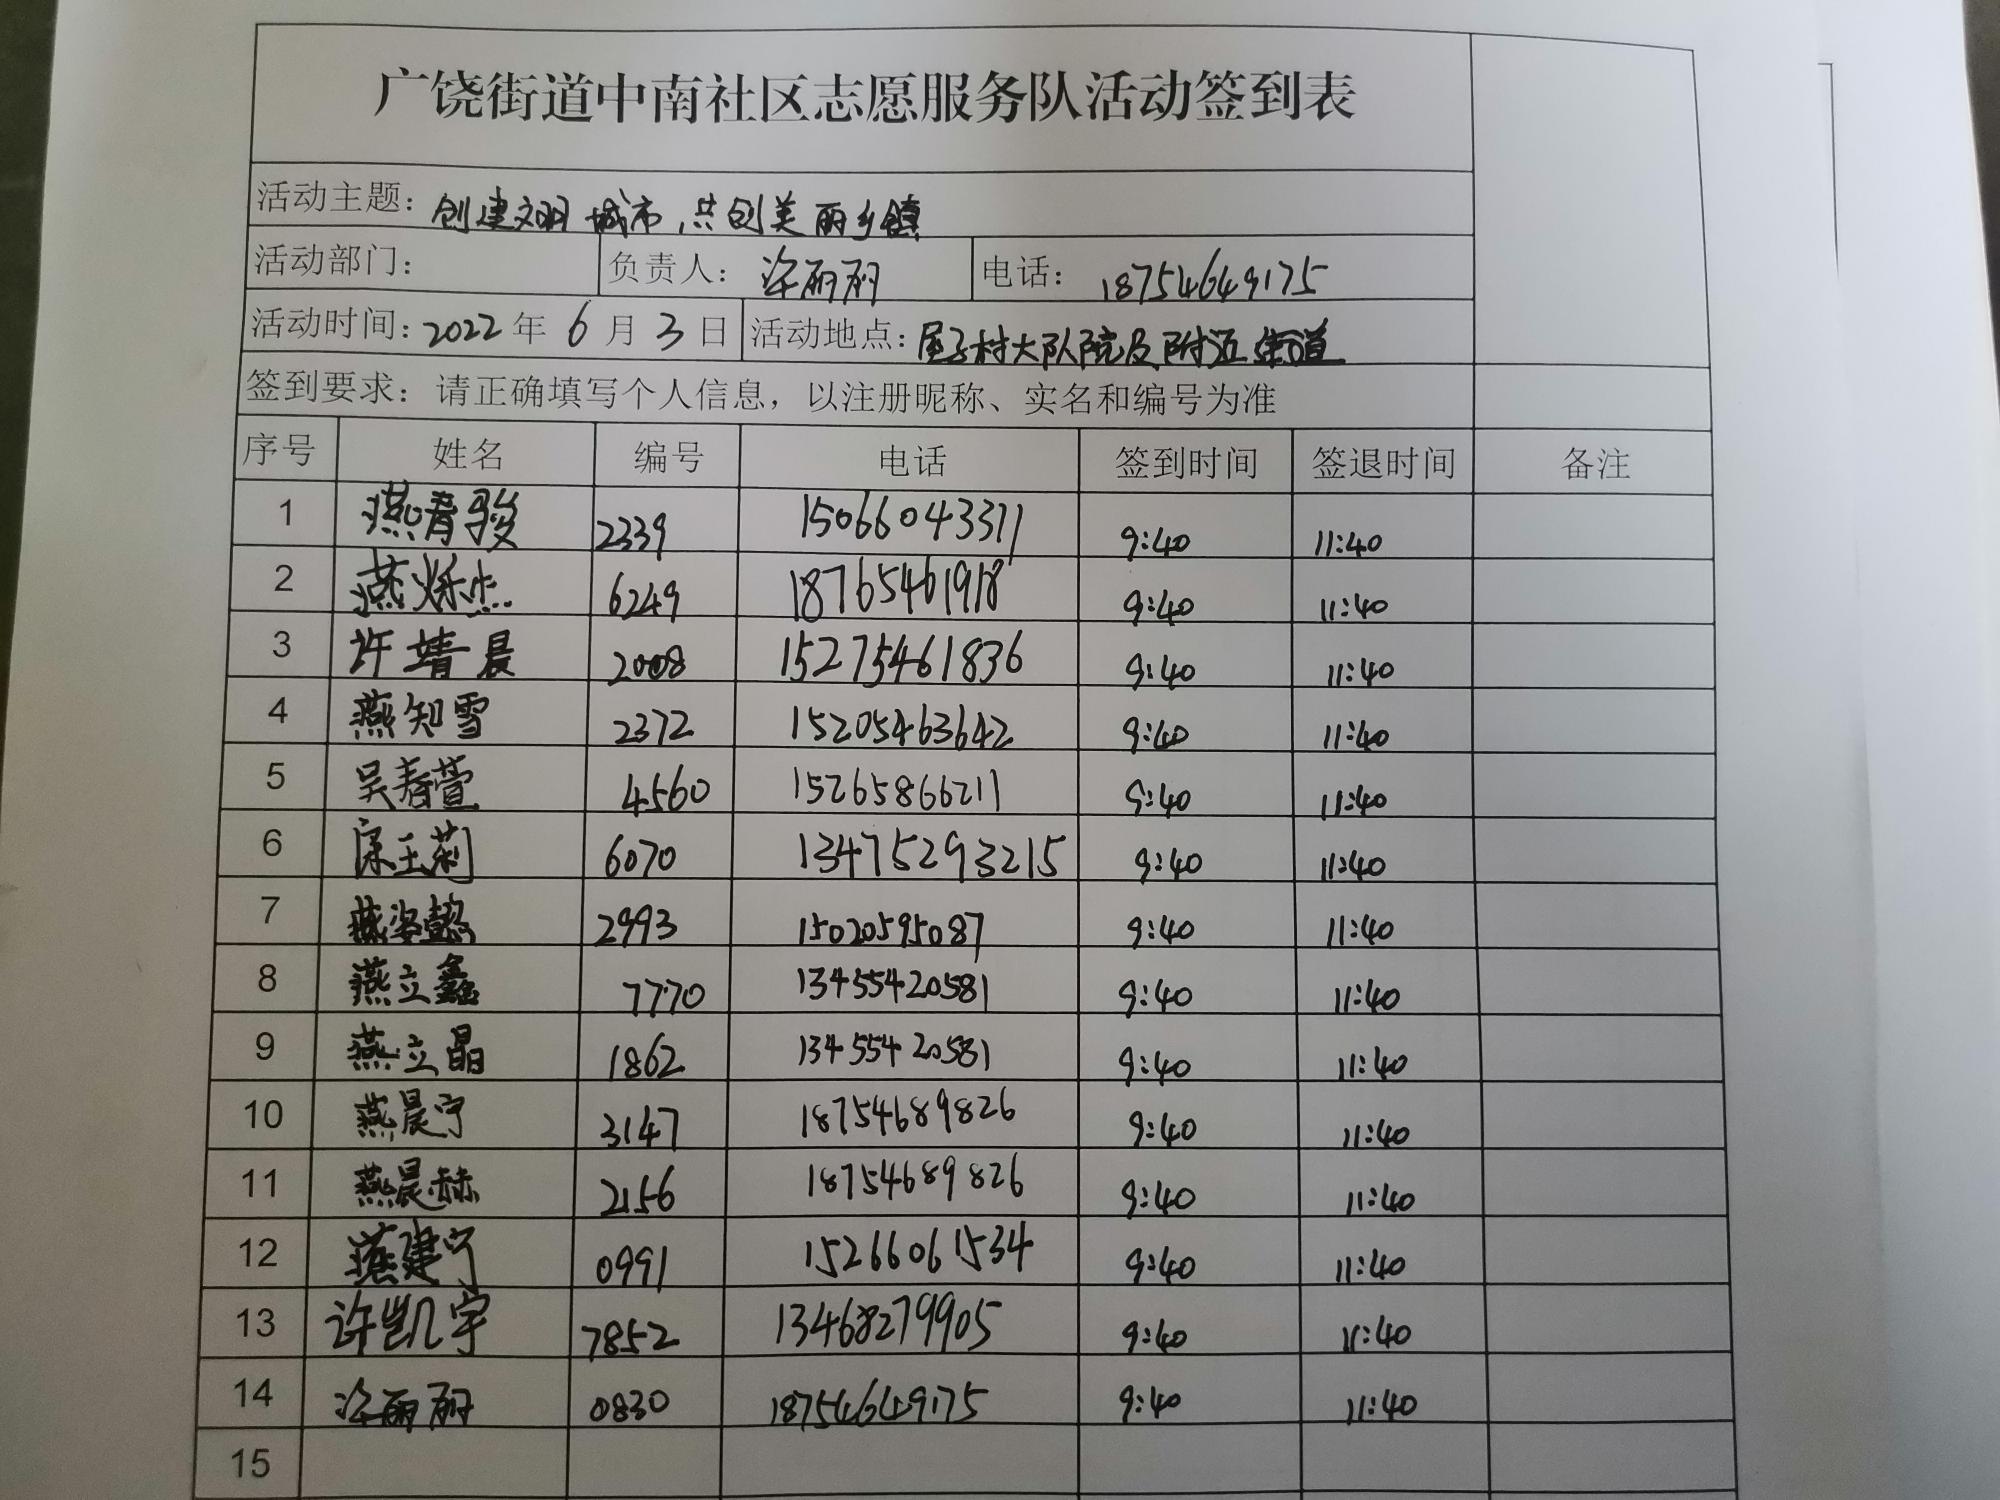 广饶街道中南社区志愿服务队活动签到表
活动主题：创建文明城市，共创美丽乡镇
活动部门： 负责人：许丽丽 电话：18754649175
活动时间：2022年6月3日 活动地点：村大队院及附近街道
签到要求：请正确填写个人信息，以注册昵称、实名和编号为准
序号 姓名 编号 电话 签到时间 签退时间 备注
1 燕春骏 2339 15066043311 9:40 11:40
2 燕烁杰 6249 18765461918 9:40 11:40
3 许靖晨 2008 15275461836 9:40 11:40
4 燕知雪 2372 15205463642 9:40 11:40
5 吴春萱 4560 15265866211 9:40 11:40
6 玉莉 6070 13475293215 9:40 11:40
7 燕姿懿 2993 15020595087 9:40 11:40
8 燕立鑫 7770 13455420581 9:40 11:40
9 燕立晶 1862 13455420581 9:40 11:40
10 燕晨宁 3147 18754689826 9:40 11:40
11 燕晨赫 2156 18754689826 9:40 11:40
12 燕建宁 0991 15266061534 9:40 11:40
13 许凯宇 7852 13468279905 9:40 11:40
14 许丽丽 0830 18754649175 9:40 11:40
15